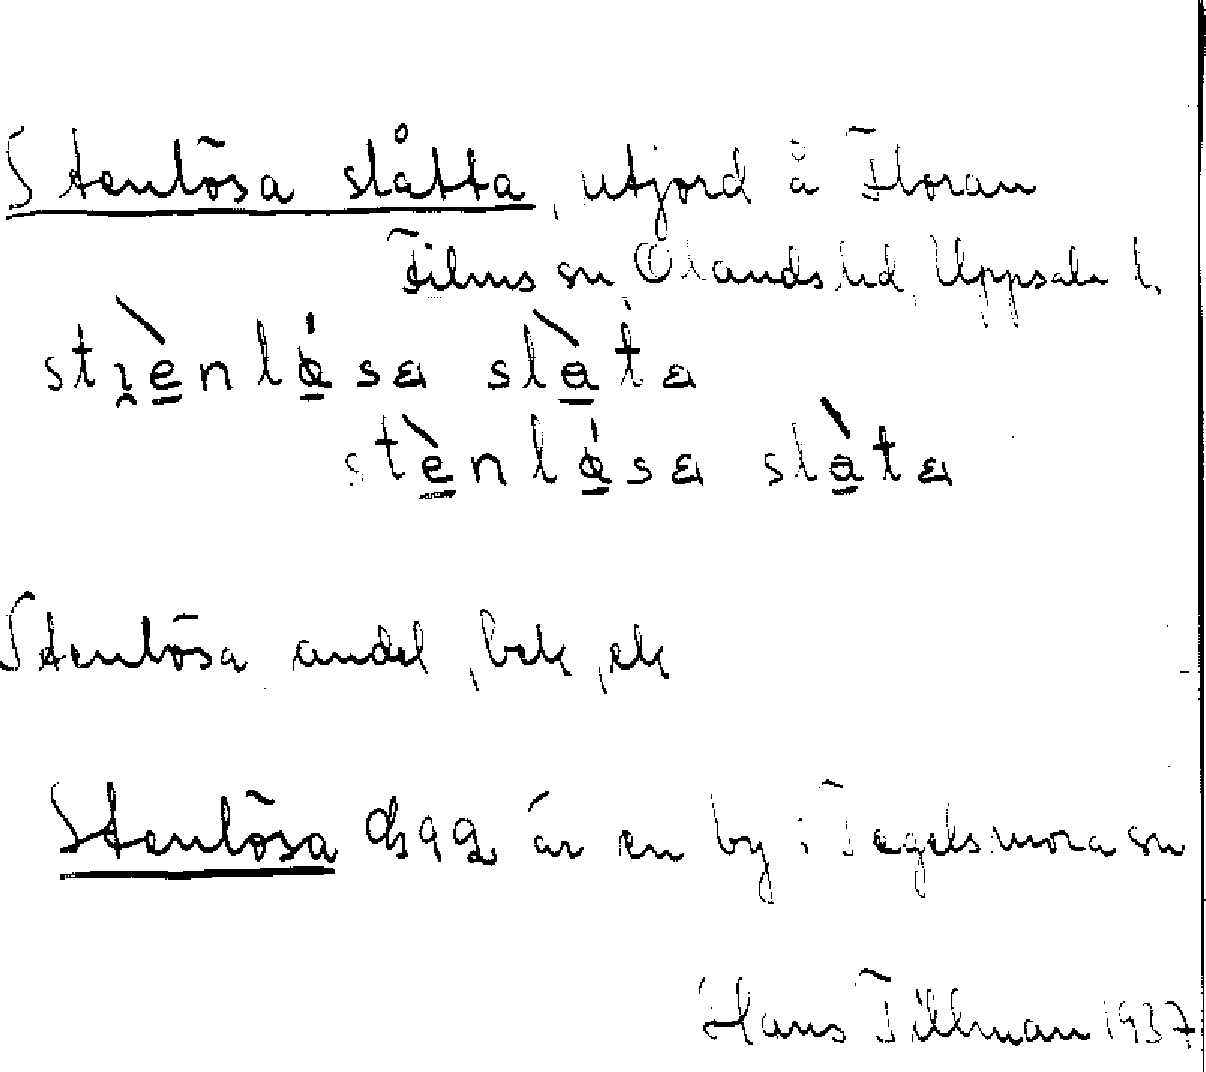 Stenlösa slåtta, utjord å Floran
Films sn Olands hd, Uppsala l.
stènlǿsa slàta
Stenlösa andel, bek, ek
Stenlösa är en by i Tegelsmora sn
Hans Tillman 1937